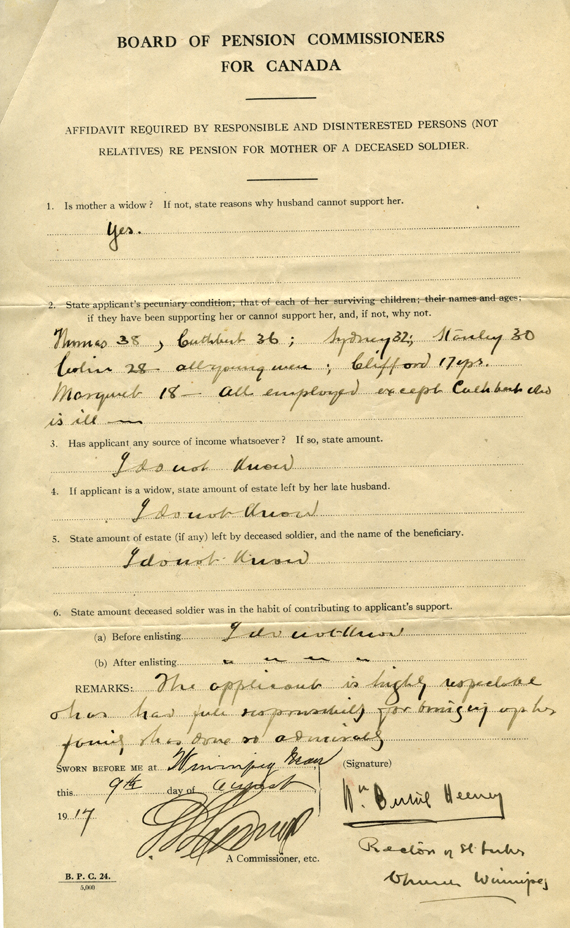 BOARD OF PENSION COMMISSIONERS
FOR CANADA
AFFIDAVIT REQUIRED BY RESPONSIBLE AND DISINTERESTED PERSONS (NOT
RELATIVES) RE PENSION FOR MOTHER OF A DECEASED SOLDIER.
1. Is mother a widow? If not, state reasons why husband cannot support her.
Yes.
2. State applicant's pecuniary condition; that of each of her surviving children; their names and ages;
if they have been supporting her or cannot support her, and, if not, why not.
Thomas 38, Cuthbert 36; Sydney 32; Stanley 30
Colin 28 - all young men; Clifford 17 yrs.
Margaret 18 - All employed except Cuthbert who
is ill
3. Has applicant any source of income whatsoever? If so, state amount.
I do not know
4. If applicant is a widow, state amount of estate left by her late husband.
I do not know
5. State amount of estate (if any) left by deceased soldier, and the name of the beneficiary.
I do not know
6. State amount deceased soldier was in the habit of contributing to applicant's support.
(a) Before enlisting I do not know
(b) After enlisting " " " "
REMARKS: The applicant is highly respectable
& has had full responsibility for bringing up her
family & has done so admirably
SWORN BEFORE ME at Winnipeg Man (Signature)
this 9th day of August
1917
Wm Bertal Heeney
A Commissioner, etc.
Rector of St Lukes
Church Winnipeg
B. P. C. 24.
5,000